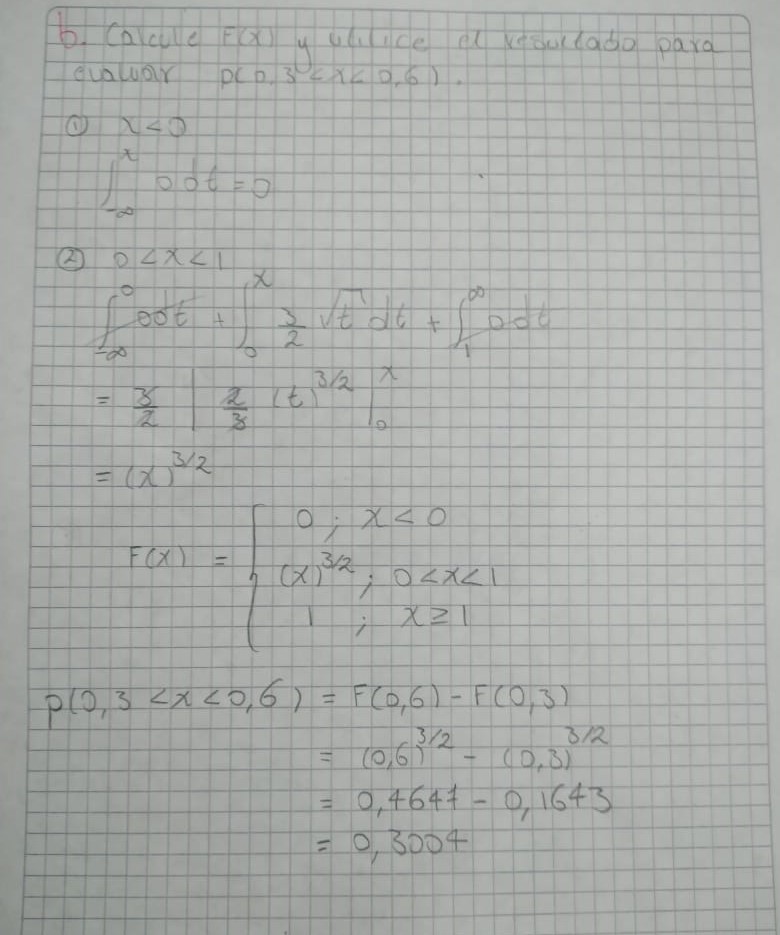 b. Calcule F(x) y utilice el resultado para
evaluar p(0,3 < x < 0,6).
① x < 0
∫_{-∞}^{x} 0 dt = 0
② 0 < x < 1
∫_{-∞}^{0} 0dt + ∫_{0}^{x} 3/2 √t dt + ∫_{1}^{∞} 0 dt
= 3/2 | 2/3 (t)^{3/2} |_{0}^{x}
= (x)^{3/2}
F(x) = { 0 ; x < 0
(x)^{3/2} ; 0 < x < 1
1 ; x ≥ 1
p(0,3 < x < 0,6) = F(0,6) - F(0,3)
= (0,6)^{3/2} - (0,3)^{3/2}
= 0,4647 - 0,1643
= 0,3004